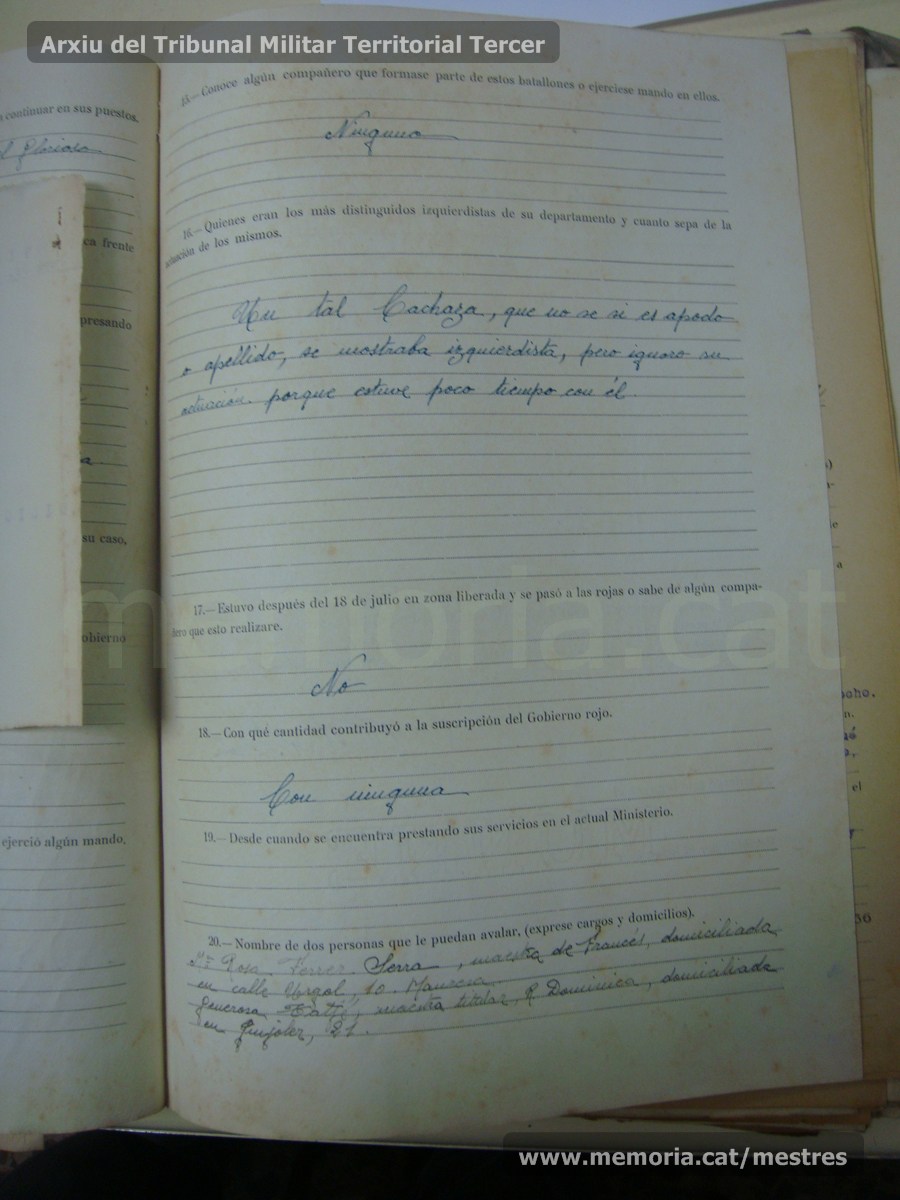 Arxiu del Tribunal Militar Territorial Tercer
continuar en sus puestos.
glorioso
ca frente
presando
a.
su caso,
obierno
ejerció algún mando,
15.—Conoce algún compañero que formase parte de estos batallones o ejerciese mando en ellos.
Ninguno
16.—Quienes eran los más distinguidos izquierdistas de su departamento y cuanto sepa de la
actuación de los mismos.
Un tal Cachaza, que no se si es apodo
o apéllido, se mostraba izquierdista, pero ignoro su
actuación. porque estuve poco tiempo con él.
17.—Estuvo después del 18 de julio en zona liberada y se pasó a las rojas o sabe de algún compa-
ñero que esto realizare.
No
18.—Con qué cantidad contribuyó a la suscripción del Gobierno rojo.
Con ninguna
19.—Desde cuando se encuentra prestando sus servicios en el actual Ministerio.
20.—Nombre de dos personas que le puedan avalar, (exprese cargos y domicilios).
Rosa Ferrer Serra, maestra de Francés, domiciliada
en calle Urgel, 10. Manresa
Generosa maestra titular, Dominica, domiciliada
en 21.
memoria.cat
oho.
n.
el
56
www.memoria.cat/mestres